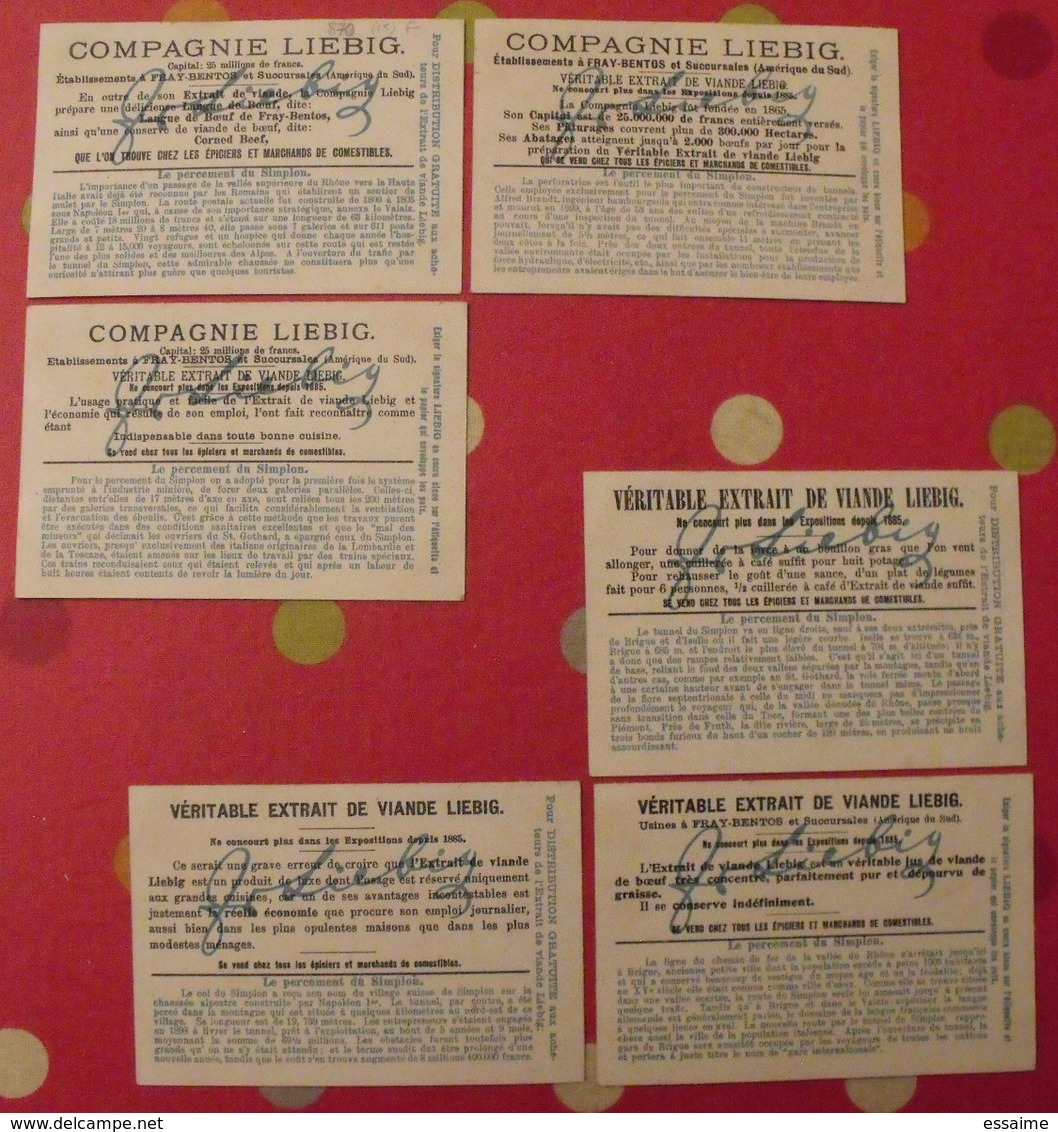 870
COMPAGNIE LIEBIG.
Capital: 25 millions de francs.
Établissements à FRAY-BENTOS et Succursales (Amérique du Sud).
En outre de son Extrait de viande, la Compagnie Liebig
prépare une délicieuse Langue de Bœuf, dite:
Langue de Bœuf de Fray-Bentos,
ainsi qu'une conserve de viande de bœuf, dite:
Corned Beef,
QUE L'ON TROUVE CHEZ LES ÉPICIERS ET MARCHANDS DE COMESTIBLES.
Le percement du Simplon.
L'importance d'un passage de la vallée supérieure du Rhône vers la Haute
Italie avait déjà été reconnue par les Romains qui établirent un sentier de
mulet par le Simplon. La route actuelle fut construite de 1800 à 1805
sous Napoléon 1er qui, à cause de son importance stratégique, annexa le Valais.
Elle a coûté 18 millions de francs et s'étend sur une longueur de 63 kilomètres.
Large de 7 mètres 20 à 8 mètres 40, elle passe sous 7 galeries et sur 611 ponts
grands et petits. Vingt refuges et un hospice qui donne chaque année l'hos-
pitalité à 12 à 15,000 voyageurs, sont échelonnés sur cette route qui est restée
l'une des plus solides et des meilleures des Alpes. A l'ouverture du trafic par
le tunnel du Simplon, cette admirable chaussée ne constituera plus qu'une
curiosité n'attirant plus guère que quelques touristes.
Pour DISTRIBUTION GRATUITE aux ache-
teurs de l'Extrait de viande Liebig.
J. v Liebig
COMPAGNIE LIEBIG.
Établissements à FRAY-BENTOS et Succursales (Amérique du Sud).
VÉRITABLE EXTRAIT DE VIANDE LIEBIG
Ne concourt plus dans les Expositions depuis 1885.
La Compagnie Liebig fut fondée en 1865.
Son Capital est de 25.000.000 de francs entièrement versés.
Ses Pâturages couvrent plus de 300.000 Hectares.
Ses Abatages atteignent jusqu'à 2.000 bœufs par jour pour la
préparation du Véritable Extrait de viande Liebig
QUI SE VEND CHEZ TOUS LES ÉPICIERS ET MARCHANDS DE COMESTIBLES.
Le percement du Simplon.
La perforatrice est l'outil le plus important du constructeur de tunnels.
Celle employée exclusivement pour le percement du Simplon fut inventée par
Alfred Brandt, ingénieur hambourgeois qui entra comme intéressé dans l'entreprise
et mourut en 1899, à l'âge de 53 ans des suites d'un refroidissement contracté
au cours d'une inspection du tunnel. Au moyen de la machine Brandt on
pouvait, lorsqu'il n'y avait pas des difficultés spéciales à surmonter, avancer
journellement de 5½ mètres, ce qui fait ensemble 11 mètres en prenant les
deux côtés à la fois. Près des deux entrées du tunnel, toute l'étendue de la
vallée environnante était occupée par les installations pour la production de
force hydraulique, d'électricité, etc., ainsi que par les nombreux établissements que
les entrepreneurs avaient érigés dans le but d'assurer le bien-être de leurs employés.
Exiger la signature LIEBIG en encre bleue sur l'étiquette et
le papier qui enveloppe les pots.
J. v Liebig
COMPAGNIE LIEBIG.
Capital: 25 millions de francs.
Etablissements à FRAY-BENTOS et Succursales (Amérique du Sud).
VÉRITABLE EXTRAIT DE VIANDE LIEBIG.
Ne concourt plus dans les Expositions depuis 1885.
L'usage pratique et facile de l'Extrait de viande Liebig et
l'économie qui résulte de son emploi, l'ont fait reconnaître comme
étant
Indispensable dans toute bonne cuisine.
Se vend chez tous les épiciers et marchands de comestibles.
Le percement du Simplon.
Pour le percement du Simplon on a adopté pour la première fois le système
emprunté à l'industrie minière, de forer deux galeries parallèles. Celles-ci,
distantes entr'elles de 17 mètres d'axe en axe, sont reliées tous les 200 mètres
par des galeries transversales, ce qui facilita considérablement la ventilation
et l'évacuation des éboulis. C'est grâce à cette méthode que les travaux purent
être exécutés dans des conditions sanitaires excellentes et que le "mal des
mineurs" qui décimait les ouvriers du St. Gothard, a épargné ceux du Simplon.
Les ouvriers, presqu'exclusivement des italiens originaires de la Lombardie et
de la Toscane, étaient amenés sur les lieux de travail par des trains spéciaux.
Ces trains reconduisaient ceux qui étaient relevés et qui après un labeur de
huit heures étaient contents de revoir la lumière du jour.
Exiger la signature LIEBIG en encre bleue sur l'étiquette et
le papier qui enveloppe les pots.
J. v Liebig
VÉRITABLE EXTRAIT DE VIANDE LIEBIG.
Ne concourt plus dans les Expositions depuis 1885.
Pour donner de la force à un bouillon gras que l'on vent
allonger, une cuillerée à café suffit pour huit potages.
Pour rehausser le goût d'une sauce, d'un plat de légumes
fait pour 6 personnes, ½ cuillerée à café d'Extrait de viande suffit.
SE VEND CHEZ TOUS LES ÉPICIERS ET MARCHANDS DE COMESTIBLES.
Le percement du Simplon.
Le tunnel du Simplon va en ligne droite, sauf à ses deux extrémités, près
de Brigue et d'Iselle où il fait une légère courbe. Iselle se trouve à 634 m.,
Brigue à 685 m. et l'endroit le plus élevé du tunnel à 704 m. d'altitude; il n'y
a donc que des rampes relativement faibles. C'est qu'il s'agit ici d'un tunnel
de base, reliant le fond des deux vallées séparées par la montagne, tandis qu'en
d'autres cas, comme par exemple au St. Gothard, la voie ferrée monte d'abord
à une certaine hauteur avant de s'engager dans le tunnel même. Le passage
de la flore septentrionale à celle du midi ne manquera pas d'impressionner
profondément le voyageur qui, de la vallée dénudée du Rhône, passe presque
sans transition dans celle du Toce, formant une des plus belles contrées du
Piémont. Près de Fruth, la dite rivière, large de 25 mètres, se précipite en
trois bonds furieux du haut d'un rocher de 120 mètres, en produisant un bruit
assourdissant.
Pour DISTRIBUTION GRATUITE aux ache-
teurs de l'Extrait de viande Liebig.
J. v Liebig
VÉRITABLE EXTRAIT DE VIANDE LIEBIG.
Ne concourt plus dans les Expositions depuis 1885.
Ce serait une grave erreur de croire que l'Extrait de viande
Liebig est un produit de luxe dont l'usage est réservé uniquement
aux grandes cuisines, car un de ses avantages incontestables est
justement la réelle économie que procure son emploi journalier,
aussi bien dans les plus opulentes maisons que dans les plus
modestes ménages.
Se vend chez tous les épiciers et marchands de comestibles.
Le percement du Simplon.
Le col du Simplon a reçu son nom du village suisse de Simplon sur la
chaussée alpestre construite par Napoléon 1er. Le tunnel, par contre, a été
percé dans la montagne qui est située à quelques kilomètres au nord-est de ce
village. Sa longueur est de 19,729 mètres. Les entrepreneurs s'étaient engagés
en 1898 à livrer le tunnel, prêt à l'exploitation, au bout de 5 années et 9 mois,
moyennant la somme de 69½ millions. Les obstacles furent toutefois plus
grands qu'on ne s'y était attendu; et le terme susdit dut être prolongé d'une
nouvelle année, tandis que le coût s'en trouva augmenté de 8 millions 400.000 francs.
Pour DISTRIBUTION GRATUITE aux ache-
teurs de l'Extrait de viande Liebig.
J. v Liebig
VÉRITABLE EXTRAIT DE VIANDE LIEBIG.
Usines à FRAY-BENTOS et Succursales (Amérique du Sud).
Ne concourt plus dans les Expositions depuis 1885.
L'Extrait de viande Liebig est un véritable jus de viande
de bœuf très concentré, parfaitement pur et dépourvu de
graisse.
Il se conserve indéfiniment.
SE VEND CHEZ TOUS LES ÉPICIERS ET MARCHANDS DE COMESTIBLES.
Le percement du Simplon.
La ligne du chemin de fer de la vallée du Rhône s'arrêtait jusqu'ici
à Brigue, ancienne petite ville dont la population excède à peine 1000 habitants
et qui a conservé beaucoup de vestiges du moyen âge et où la localité; déjà
au XVe siècle elle était connue comme ville d'eaux. Comme elle se trouve située
dans une vallée écartée, la route du Simplon seule lui amenait jusqu'à présent
quelque trafic. Tandis qu'à Brigue et dans le Valais supérieur la langue
allemande est généralement parlée, le domaine de la langue française commence
à quelques lieues en aval. La nouvelle route par le tunnel du Simplon rappro-
chera aussi la ville de la population italienne. Après l'ouverture du tunnel, la
gare de Brigue sera aussitôt occupée par les voyageurs de toutes les nations
et portera à juste titre le nom de "gare internationale".
Exiger la signature LIEBIG en encre bleue sur l'étiquette et
le papier qui enveloppe les pots.
J. v Liebig
www.delcampe.net
essaime